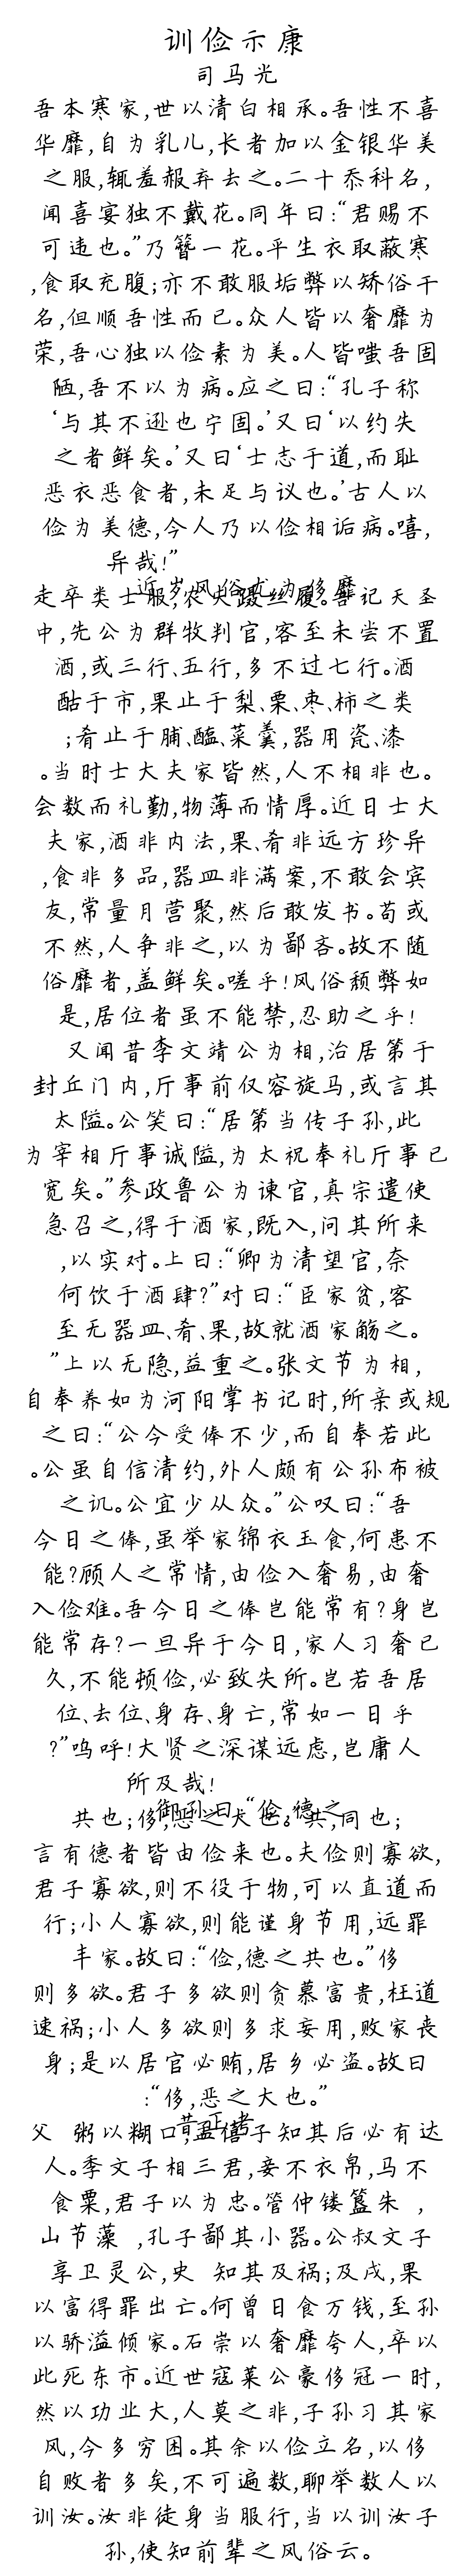 训俭示康
司马光
吾本寒家,世以清白相承。吾性不喜
华靡,自为乳儿,长者加以金银华美
之服,辄羞赧弃去之。二十忝科名,
闻喜宴独不戴花。同年曰:“君赐不
可违也。”乃簪一花。平生衣取蔽寒
,食取充腹;亦不敢服垢弊以矫俗干
名,但顺吾性而已。众人皆以奢靡为
荣,吾心独以俭素为美。人皆嗤吾固
陋,吾不以为病。应之曰:“孔子称
‘与其不逊也宁固。’又曰‘以约失
之者鲜矣。’又曰‘士志于道,而耻
恶衣恶食者,未足与议也。’古人以
俭为美德,今人乃以俭相诟病。嘻,
异哉!”
近岁风俗尤为侈靡,
走卒类士服,农夫蹑丝履。吾记天圣
中,先公为群牧判官,客至未尝不置
酒,或三行、五行,多不过七行。酒
酤于市,果止于梨、栗、枣、柿之类
;肴止于脯、醢、菜羹,器用瓷、漆
。当时士大夫家皆然,人不相非也。
会数而礼勤,物薄而情厚。近日士大
夫家,酒非内法,果、肴非远方珍异
,食非多品,器皿非满案,不敢会宾
友,常量月营聚,然后敢发书。苟或
不然,人争非之,以为鄙吝。故不随
俗靡者,盖鲜矣。嗟乎!风俗颓弊如
是,居位者虽不能禁,忍助之乎!
又闻昔李文靖公为相,治居第于
封丘门内,厅事前仅容旋马,或言其
太隘。公笑曰:“居第当传子孙,此
为宰相厅事诚隘,为太祝奉礼厅事已
宽矣。”参政鲁公为谏官,真宗遣使
急召之,得于酒家,既入,问其所来
,以实对。上曰:“卿为清望官,奈
何饮于酒肆?”对曰:“臣家贫,客
至无器皿、肴、果,故就酒家觞之。
”上以无隐,益重之。张文节为相,
自奉养如为河阳掌书记时,所亲或规
之曰:“公今受俸不少,而自奉若此
。公虽自信清约,外人颇有公孙布被
之讥。公宜少从众。”公叹曰:“吾
今日之俸,虽举家锦衣玉食,何患不
能?顾人之常情,由俭入奢易,由奢
入俭难。吾今日之俸岂能常有?身岂
能常存?一旦异于今日,家人习奢已
久,不能顿俭,必致失所。岂若吾居
位、去位、身存、身亡,常如一日乎
?”呜呼!大贤之深谋远虑,岂庸人
所及哉!
御孙曰:“俭,德之
共也;侈,恶之大也。”共,同也;
言有德者皆由俭来也。夫俭则寡欲,
君子寡欲,则不役于物,可以直道而
行;小人寡欲,则能谨身节用,远罪
丰家。故曰:“俭,德之共也。”侈
则多欲。君子多欲则贪慕富贵,枉道
速祸;小人多欲则多求妄用,败家丧
身;是以居官必贿,居乡必盗。故曰
:“侈,恶之大也。”
昔正考
父 粥以糊口,孟僖子知其后必有达
人。季文子相三君,妾不衣帛,马不
食粟,君子以为忠。管仲镂簋朱 ,
山节藻 ,孔子鄙其小器。公叔文子
享卫灵公,史 知其及祸;及戌,果
以富得罪出亡。何曾日食万钱,至孙
以骄溢倾家。石崇以奢靡夸人,卒以
此死东市。近世寇莱公豪侈冠一时,
然以功业大,人莫之非,子孙习其家
风,今多穷困。其余以俭立名,以侈
自败者多矣,不可遍数,聊举数人以
训汝。汝非徒身当服行,当以训汝子
孙,使知前辈之风俗云。